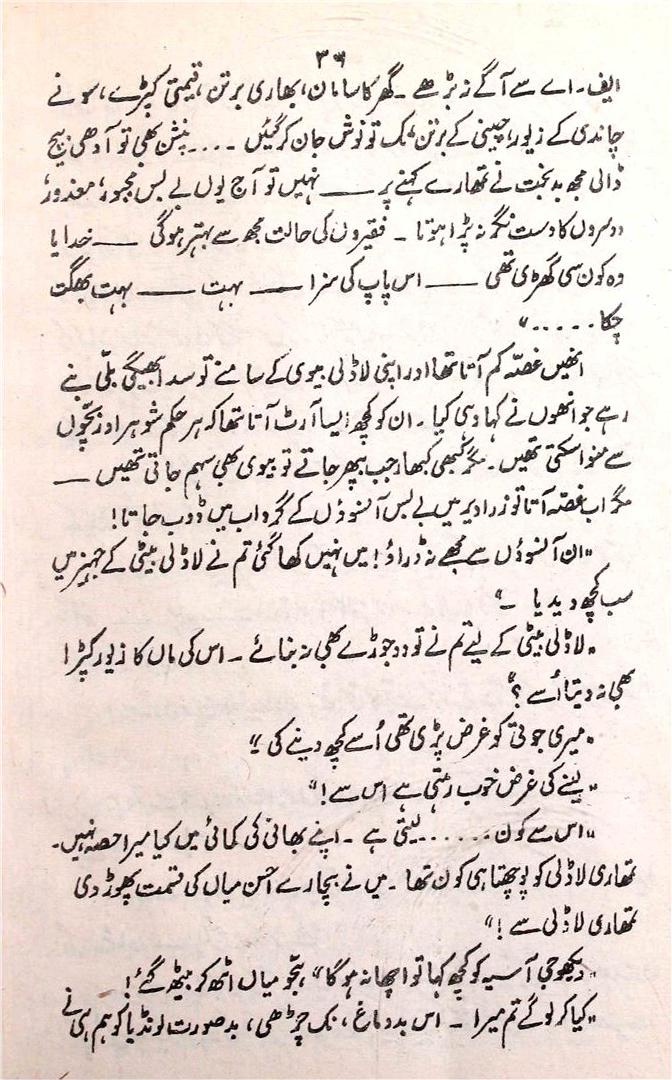 ۳۶
ایف۔ اے سے آگے نہ بڑھے ۔ گھر کا سامان، بھاری برتن، قیمتی کپڑے، سونے
چاندی کے زیور، چینی کے برتن تک تو نوش جان کر گئیں ۔۔۔۔ پنشن بھی تو آدھی بیچ
ڈالی مجھ بدبخت نے تمھارے کہنے پر ــــ نہیں تو آج یوں بے بس مجبور، معذور،
دوسروں کا دست نگر نہ پڑا ہوتا ۔ فقیروں کی حالت مجھ سے بہتر ہوگی ــــ خدایا
وہ کون سی گھڑی تھی ــــ اس پاپ کی سزا ــــ بہت ــــ بہت بھگت
چکا ۔۔۔۔۔"
انھیں غصّہ کم آتا تھا اور اپنی لاڈلی بیوی کے سامنے تو سدا بھیگی بلّی بنے
رہے جو انھوں نے کہا وہی کیا ۔ ان کو کچھ ایسا آرٹ آتا تھا کہ ہر حکم شوہر اور بچّوں
سے منوا سکتی تھیں ۔ مگر کبھی کبھار جب بپھر جاتے تو بیوی بھی سہم جاتی تھیں ــــ
مگر اب غصّہ آتا تو زرا دیر میں بے بس آنسوؤں کے گرداب میں ڈوب جاتا!
"ان آنسوؤں سے مجھے نہ ڈراؤ! میں نہیں کھا گئی تم نے لاڈلی بیٹی کے جہیز میں
سب کچھ دیدیا ۔"
"لاڈلی بیٹی کے لیے تم نے تو دو جوڑے بھی نہ بنائے ۔ اس کی ماں کا زیور کپڑا
بھی نہ دیتا اُسے ؟"
"میری جوتی کو غرض پڑی تھی اُسے کچھ دینے کی ۔"
"لینے کی غرض خوب رہتی ہے اس سے!"
"اس سے کون ۔۔۔۔۔۔ لیتی ہے ۔ اپنے بھائی کی کمائی میں کیا میرا حصہ نہیں ۔
تمھاری لاڈلی کو پوچھتا ہی کون تھا ۔ میں نے بیچارے احسن میاں کی قسمت پھوڑ دی
تمھاری لاڈلی سے!"
"دیکھو جی آسیہ کو کچھ کہا تو اچھا نہ ہوگا"، میاں اٹھ کر بیٹھ گئے!
"کیا کر لوگے تم میرا ۔ اس بد دماغ، نک چڑھی، بد صورت لونڈیا کو ہم ہی نے